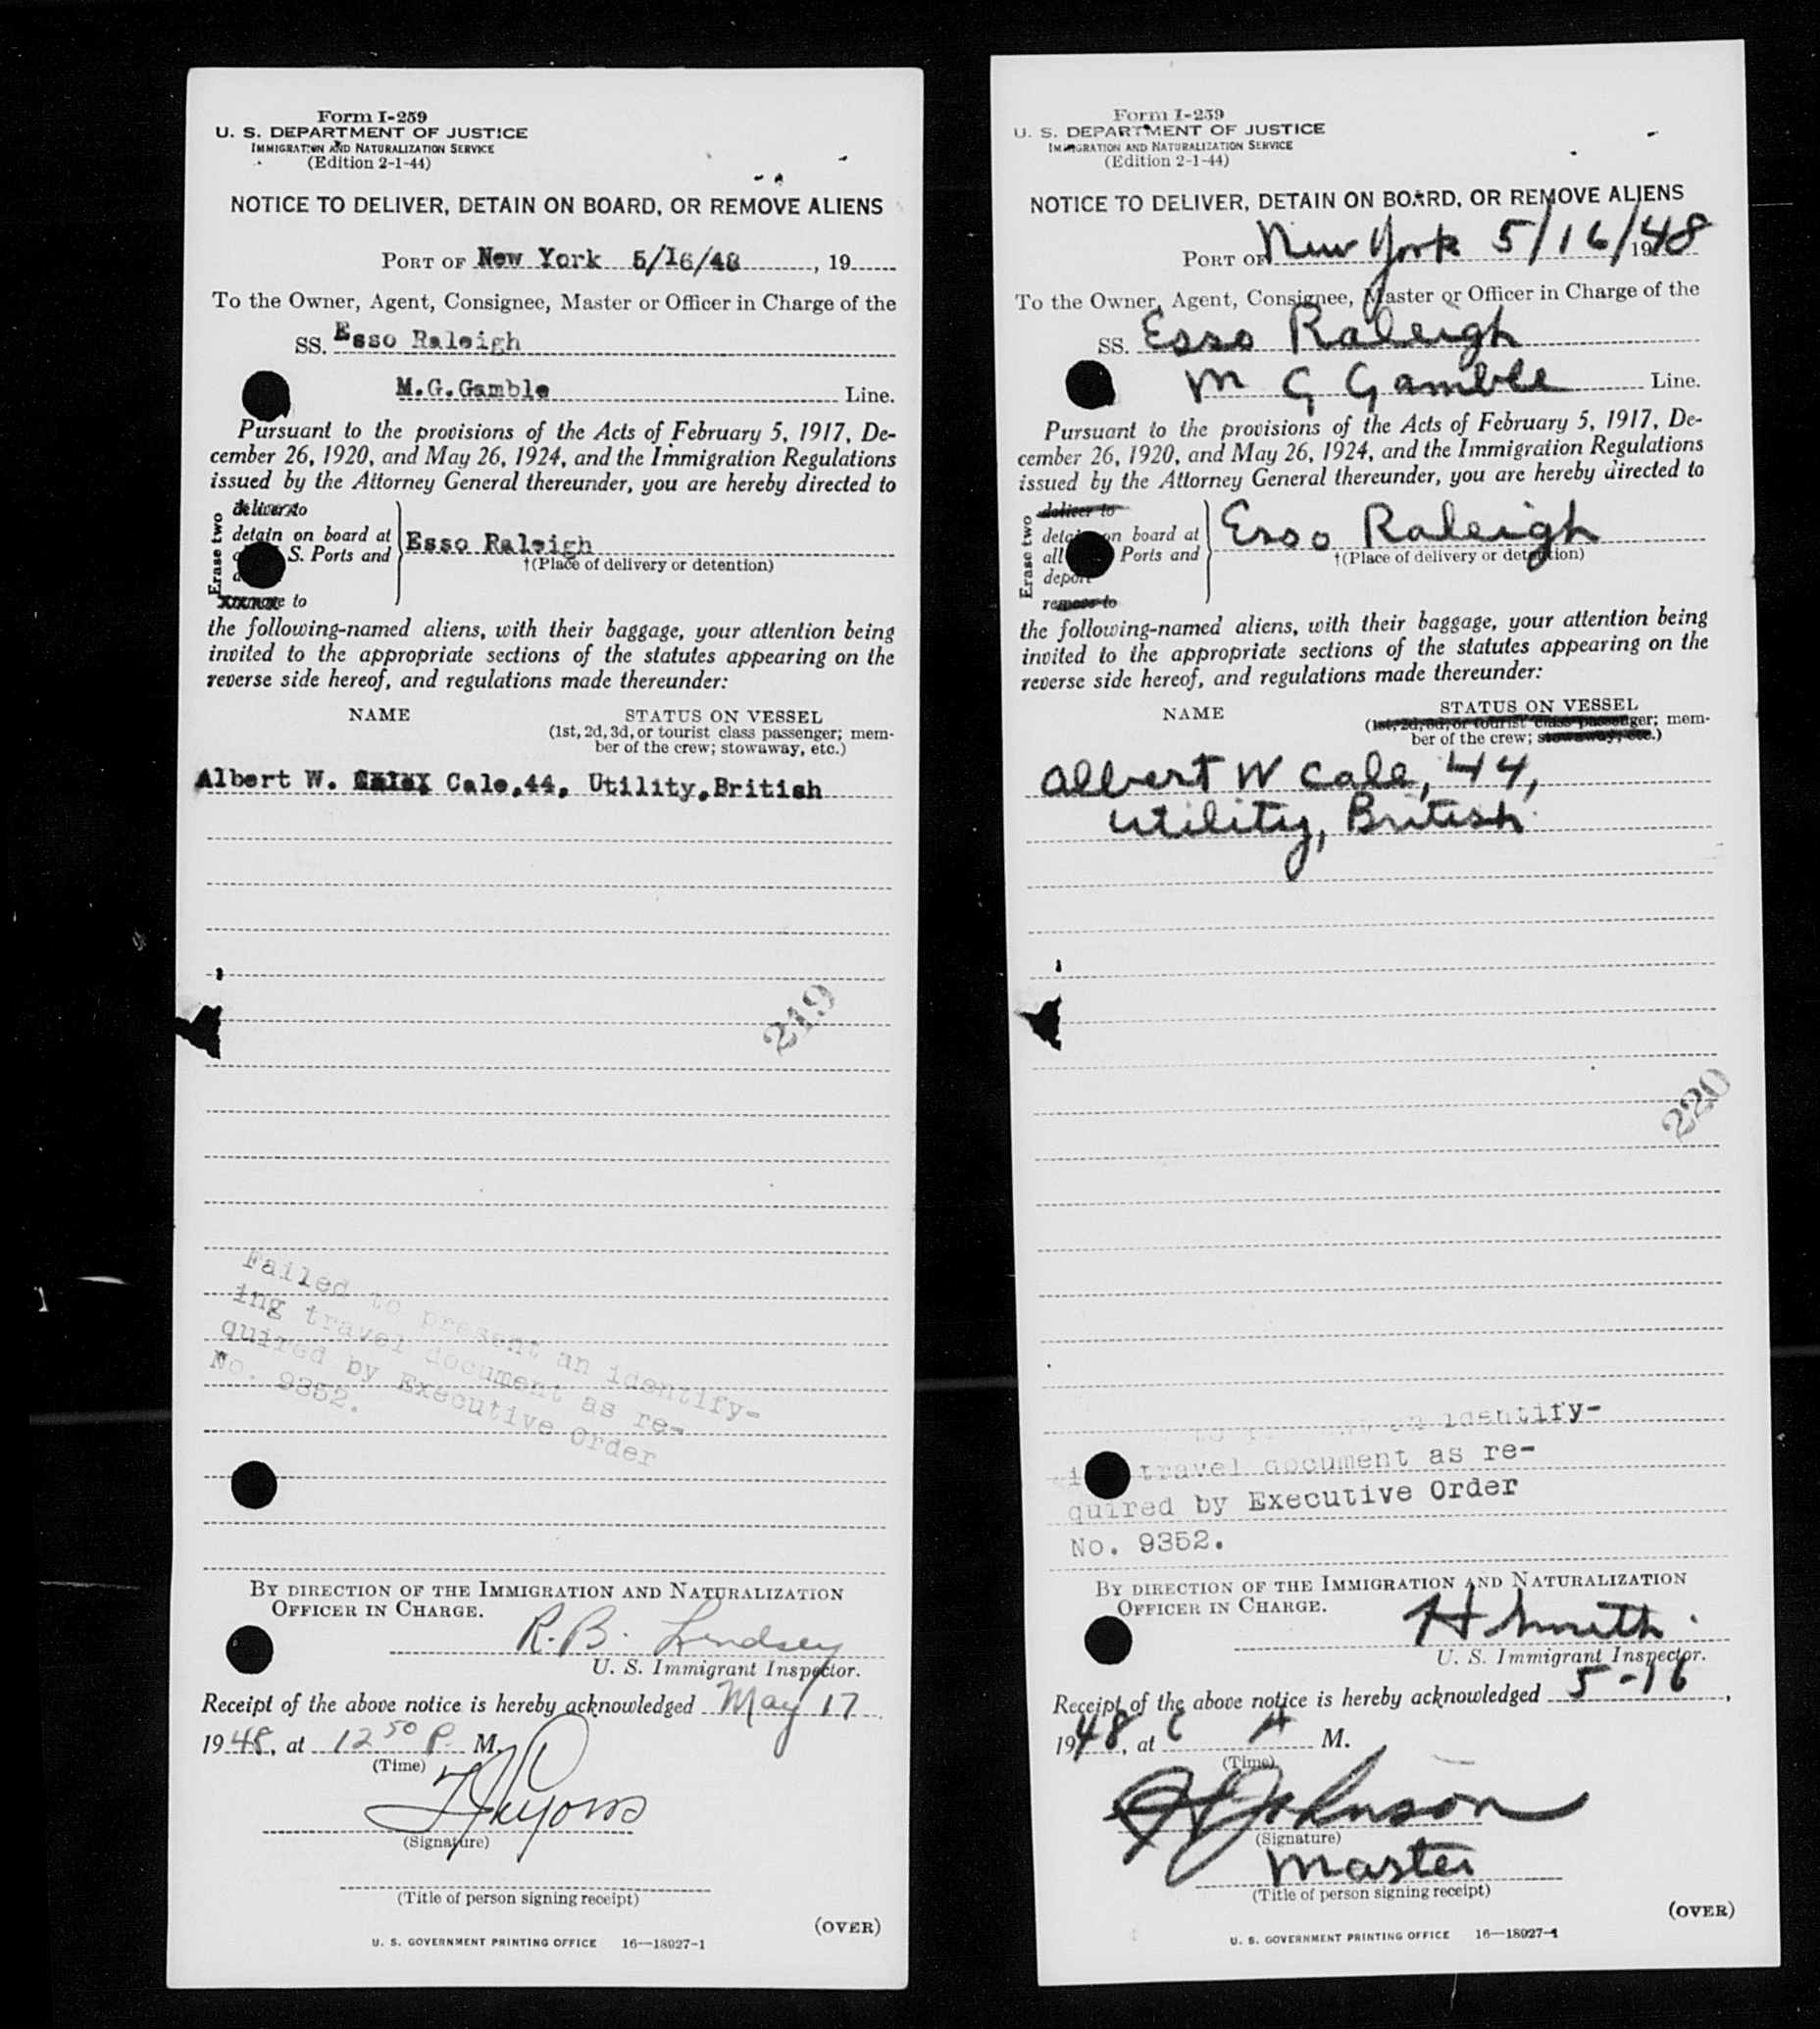 Form I-259
U. S. DEPARTMENT OF JUSTICE
IMMIGRATION AND NATURALIZATION SERVICE
(Edition 2-1-44)
NOTICE TO DELIVER, DETAIN ON BOARD, OR REMOVE ALIENS
PORT OF New York 5/16/48, 19
To the Owner, Agent, Consignee, Master or Officer in Charge of the
SS. Esso Raleigh
M.G.Gamble Line.
Pursuant to the provisions of the Acts of February 5, 1917, De-
cember 26, 1920, and May 26, 1924, and the Immigration Regulations
issued by the Attorney General thereunder, you are hereby directed to
Erase two
deliver to
detain on board at
S. Ports and
Esso Raleigh
†(Place of delivery or detention)
remove to
the following-named aliens, with their baggage, your attention being
invited to the appropriate sections of the statutes appearing on the
reverse side hereof, and regulations made thereunder:
NAME STATUS ON VESSEL
(1st, 2d, 3d, or tourist class passenger; mem-
ber of the crew; stowaway, etc.)
Albert W. Cale,44, Utility,British
219
Failed to present an identify-
ing travel document as re-
quired by Executive Order
No. 9352.
BY DIRECTION OF THE IMMIGRATION AND NATURALIZATION
OFFICER IN CHARGE.
R. B. Lindsey
U. S. Immigrant Inspector.
Receipt of the above notice is hereby acknowledged May 17,
1948, at 12 50 P. M.
(Time)
(Signature)
(Title of person signing receipt)
(OVER)
U. S. GOVERNMENT PRINTING OFFICE 16—18027-1
Form I-259
U. S. DEPARTMENT OF JUSTICE
IMMIGRATION AND NATURALIZATION SERVICE
(Edition 2-1-44)
NOTICE TO DELIVER, DETAIN ON BOARD, OR REMOVE ALIENS
PORT OF New York 5/16/1948
To the Owner, Agent, Consignee, Master or Officer in Charge of the
SS. Esso Raleigh
M G Gamble Line.
Pursuant to the provisions of the Acts of February 5, 1917, De-
cember 26, 1920, and May 26, 1924, and the Immigration Regulations
issued by the Attorney General thereunder, you are hereby directed to
Erase two
deliver to
detain on board at
all Ports and
deport
Esso Raleigh
†(Place of delivery or detention)
remove to
the following-named aliens, with their baggage, your attention being
invited to the appropriate sections of the statutes appearing on the
reverse side hereof, and regulations made thereunder:
NAME STATUS ON VESSEL
(1st, 2d, 3d, or tourist class passenger; mem-
ber of the crew; stowaway, etc.)
Albert W Cale, 44,
Utility, British
220
identify-
travel document as re-
quired by Executive Order
No. 9352.
BY DIRECTION OF THE IMMIGRATION AND NATURALIZATION
OFFICER IN CHARGE.
H Smith
U. S. Immigrant Inspector.
Receipt of the above notice is hereby acknowledged 5-16,
1948, at A M.
(Time)
Johnson
(Signature)
Master
(Title of person signing receipt)
(OVER)
U. S. GOVERNMENT PRINTING OFFICE 16—18027-1